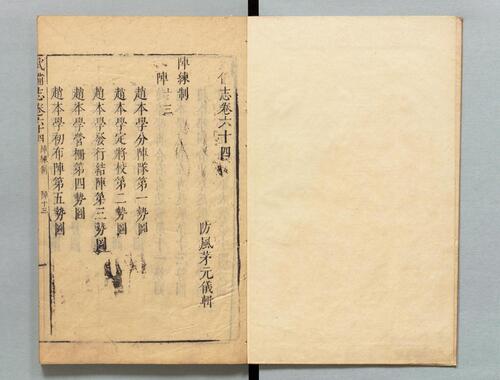 武備志卷六十四
防風茅元儀輯
陣練制
陣十三
趙本學分陣隊第一勢圖
趙本學定將校第二勢圖
趙本學發行結陣第三勢圖
趙本學營柵第四勢圖
趙本學初布陣第五勢圖
武備志卷六十四 陣練制 陣十三 一